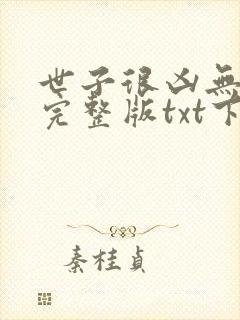 世子很凶無
完整版txt下
秦桂貞